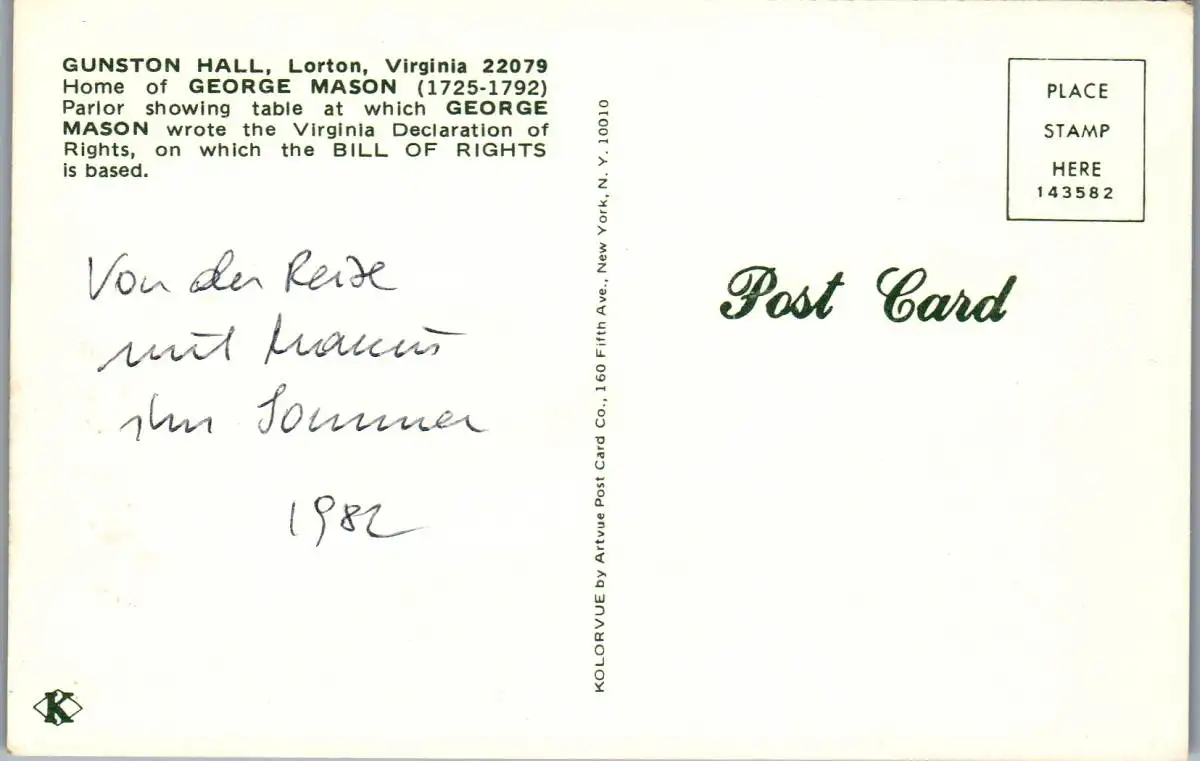 GUNSTON HALL, Lorton, Virginia 22079
Home of GEORGE MASON (1725-1792)
Parlor showing table at which GEORGE
MASON wrote the Virginia Declaration of
Rights, on which the BILL OF RIGHTS
is based.
Von der Reise
mit Markus
im Sommer
1982
K
KOLORVUE by Artvue Post Card Co., 160 Fifth Ave., New York, N. Y. 10010
PLACE
STAMP
HERE
143582
Post Card